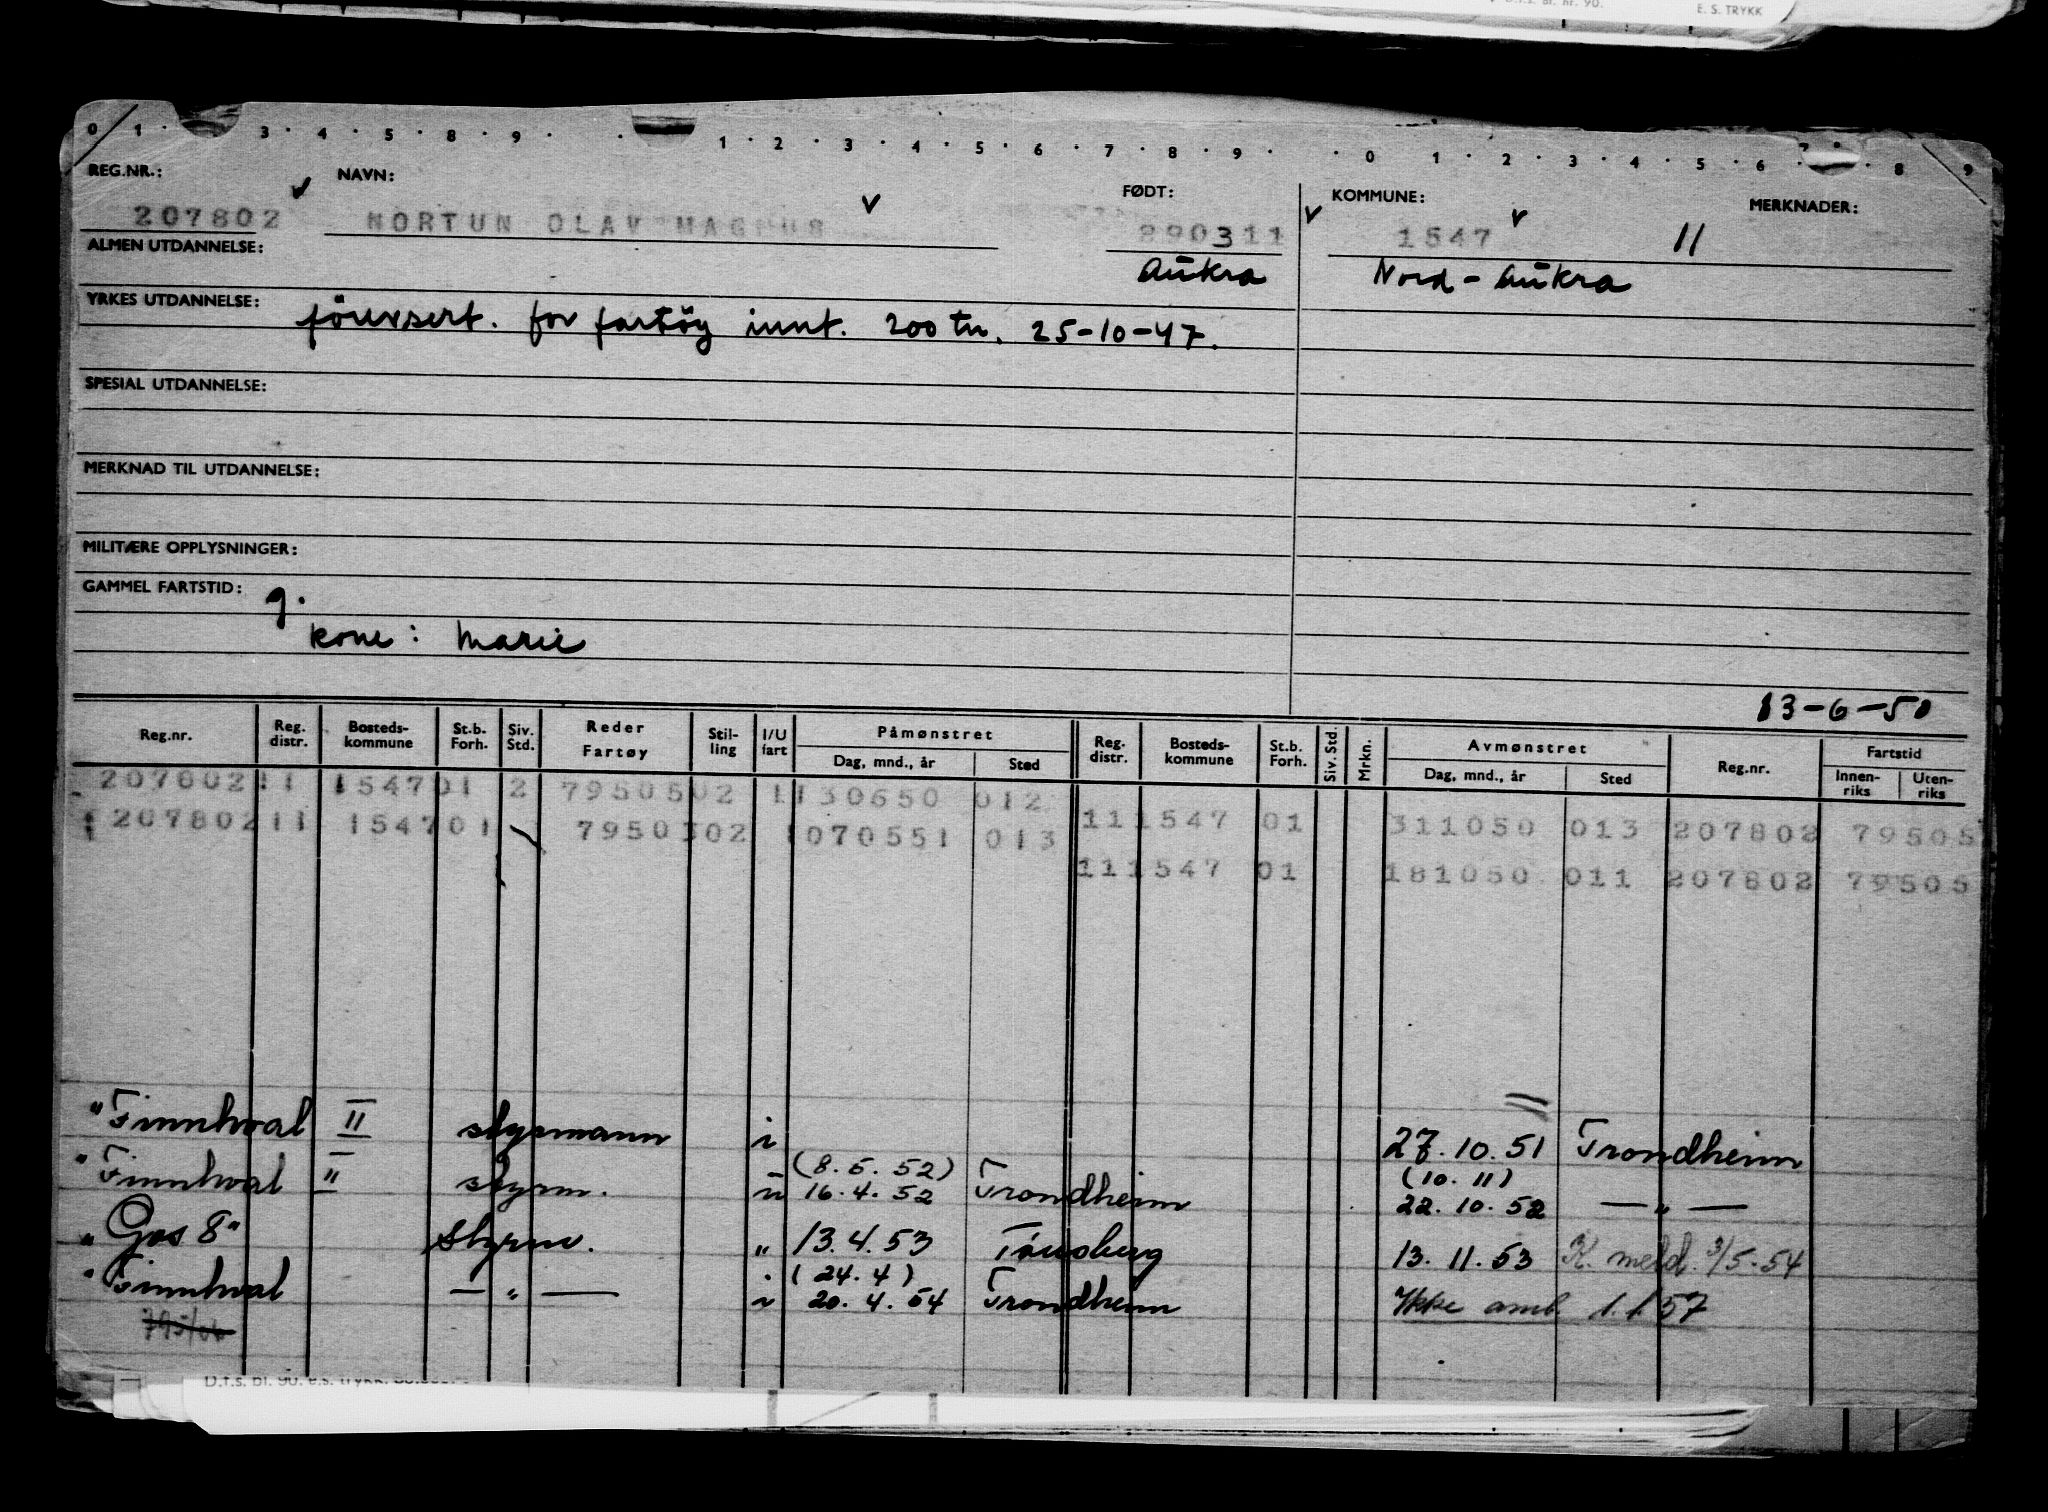 D.f.s. bl. nr. 90. E. S. TRYKK
0 1 3 4 5 8 9 1 2 3 4 5 6 7 8 9 0 1 2 3 4 5 6 7 8 9
REG.NR.: NAVN: FØDT: KOMMUNE: MERKNADER:
207802 NORTUN OLAV MAGNUS 290311 1547 11
ALMEN UTDANNELSE: Aukra Nord - Aukra
YRKES UTDANNELSE: förersert. for fartöy innt. 200 tn. 25-10-47.
SPESIAL UTDANNELSE:
MERKNAD TIL UTDANNELSE:
MILITÆRE OPPLYSNINGER:
GAMMEL FARTSTID: g.
kone: Marie
13-6-50
Reg.nr. Reg. distr. Bosteds-kommune St.b. Forh. Siv. Std. Reder Fartøy Stil-ling I/U fart Påmønstret Dag, mnd., år Sted Reg. distr. Bosteds-kommune St.b. Forh. Siv. Std. Mrkn. Avmønstret Dag, mnd., år Sted Reg.nr. Fartstid Innen-riks Uten-riks
207802 11 1547 01 2 7950502 1 130650 012
207802 11 1547 01 7950302 1 070551 013 11 1547 01 311050 013 207802 79505
11 1547 01 181050 011 207802 79505
"Finnhval II styrmann i 27.10.51 Trondheim
"Finnhval " styrm. u (8.5.52) 16.4.52 Trondheim (10.11) 22.10.52 — " —
"Gos 8" Styrm. " 13.4.53 Tönsberg 13.11.53 K. meld. 3/5-54
"Finnhval — " — i (24.4) 20.4.54 Trondheim Ikke omb. 1.1.57
D.f.s. bl. 90. e.s. trykk.